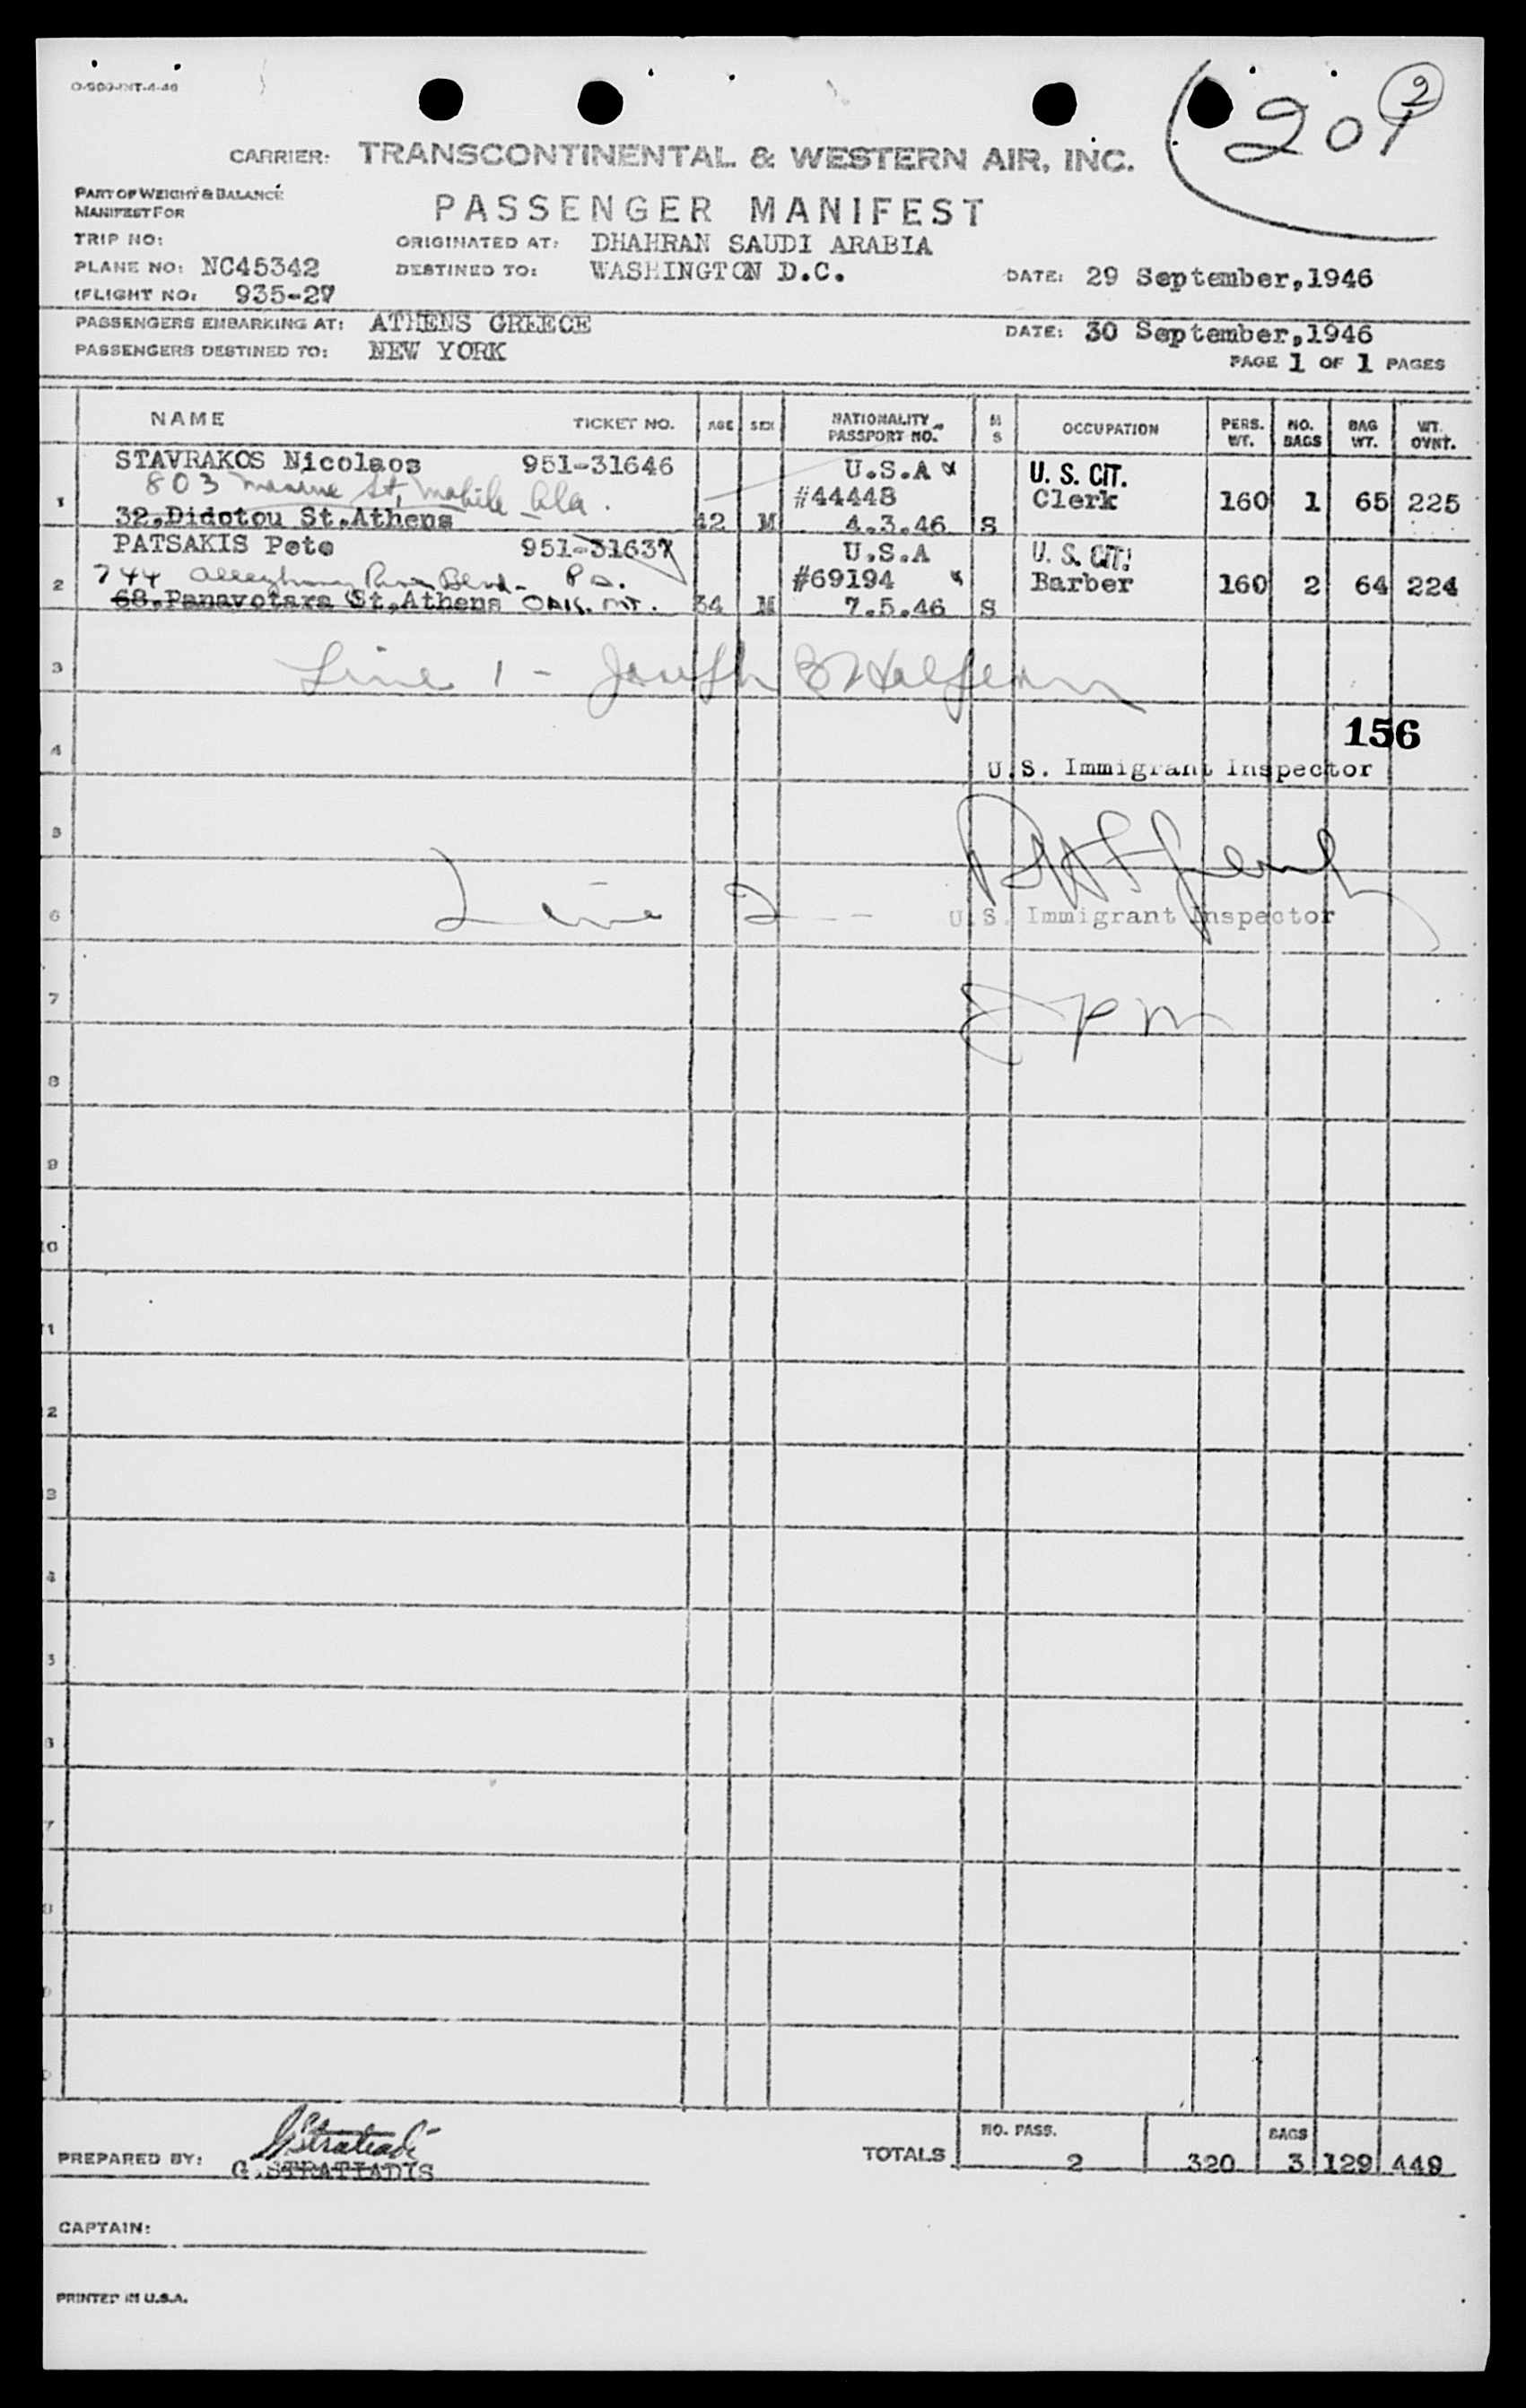 O-909-INT-4-46
2
201
CARRIER: TRANSCONTINENTAL & WESTERN AIR, INC.
PART OF WEIGHT & BALANCE
MANIFEST FOR
PASSENGER MANIFEST
TRIP NO:
ORIGINATED AT: DHAHRAN SAUDI ARABIA
PLANE NO: NC45342
DESTINED TO: WASHINGTON D.C.
DATE: 29 September,1946
FLIGHT NO: 935-27
PASSENGERS EMBARKING AT: ATHENS GREECE
DATE: 30 September,1946
PASSENGERS DESTINED TO: NEW YORK
PAGE 1 OF 1 PAGES
NAME TICKET NO. AGE SEX NATIONALITY PASSPORT NO. M S OCCUPATION PERS. WT. NO. BAGS BAG WT. WT. OVNT.
STAVRAKOS Nicolaos 951-31646 U.S.A U. S. CIT.
1 803 St, Mobile Ala. #44448 Clerk 160 1 65 225
32,Didotou St.Athens 42 M 4.3.46 S
PATSAKIS Pete 951-31637 U.S.A U. S. CIT.
2 744 Allegheny River Blvd. Pa. #69194 Barber 160 2 64 224
68,Panavotara St,Athens OAK. MT. 34 M 7.5.46 S
3 Line 1 - Joseph
156
4
U.S. Immigrant Inspector
5
6 Line 2 -- U.S. Immigrant Inspector
7
8
9
10
11
12
13
14
15
16
17
18
NO. PASS. BAGS
PREPARED BY: G.STRATIADIS
TOTALS 2 320 3 129 449
CAPTAIN:
PRINTED IN U.S.A.